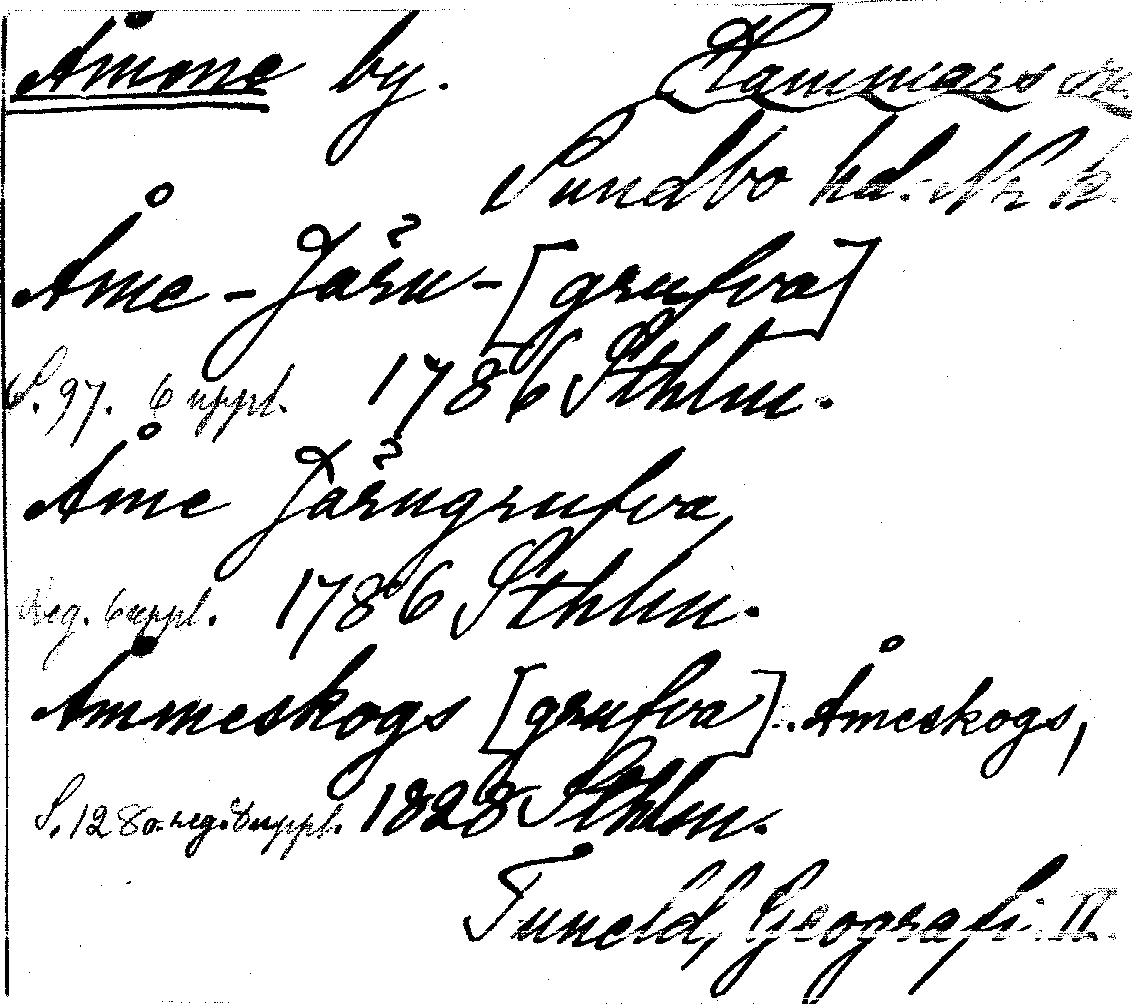 Åmme by. Hammars sn.
Sundbo hd. Nk k.
Åme - Järn - [grufva]
S. 97. 6 uppl. 1786 Sthlm.
Åme Järngrufva,
Reg. 6 uppl. 1786 Sthlm.
Åmmeskogs [grufva]. Åmeskogs,
S. 128 o. reg. i 6 uppl. 1828 Sthlm.
Tuneld, Geografi II.